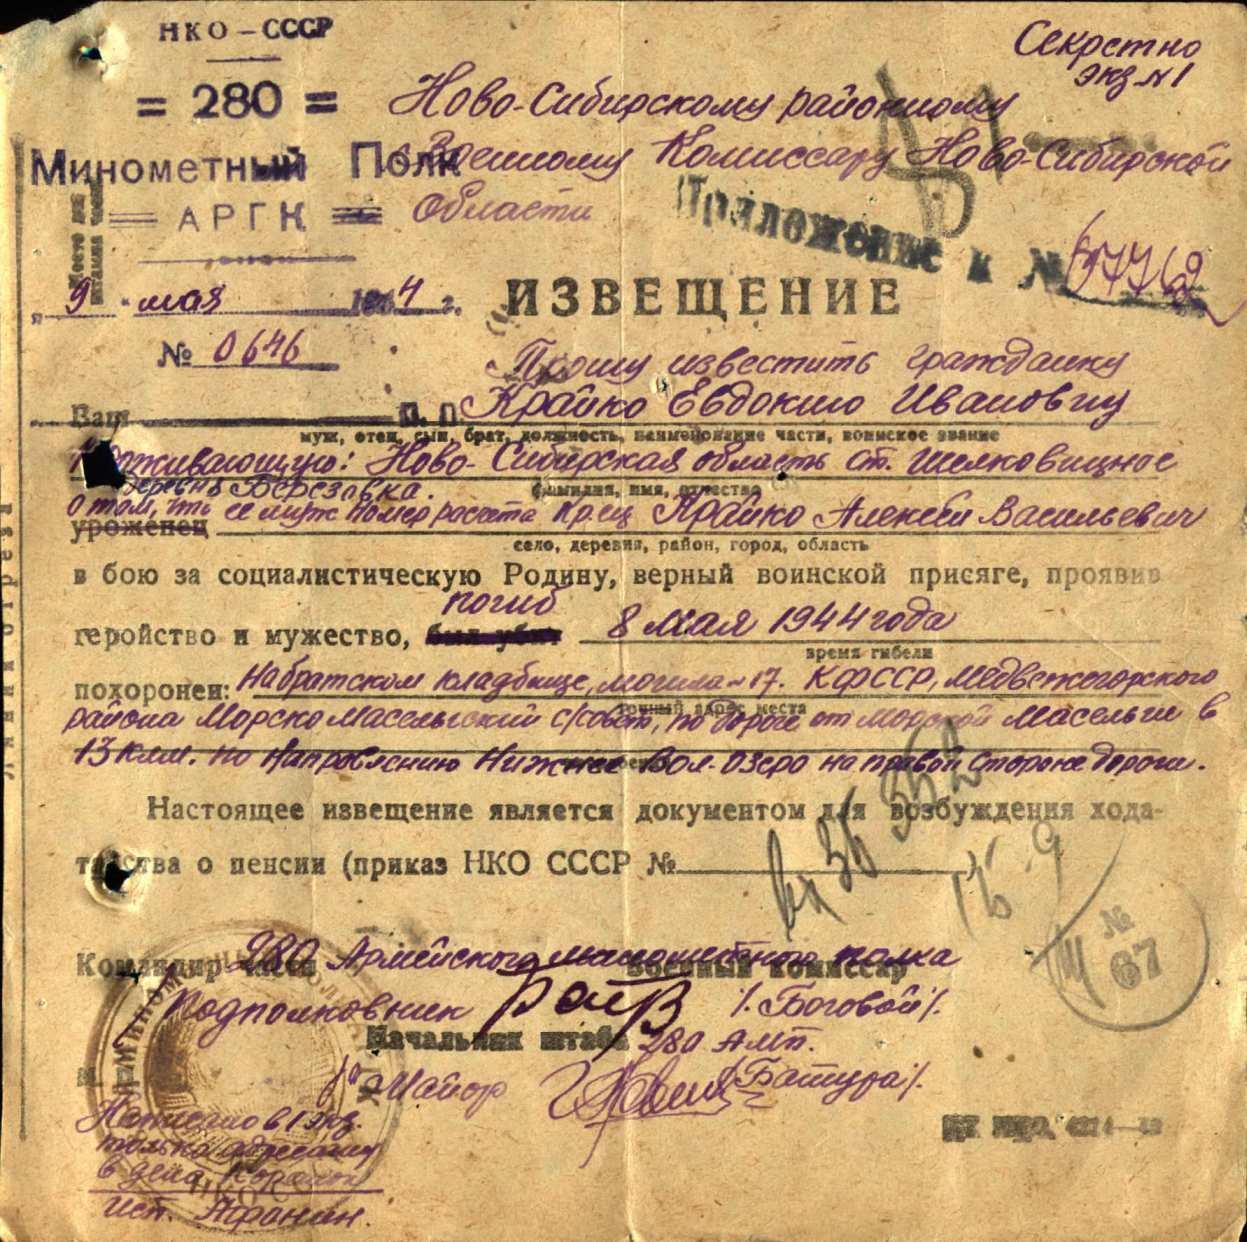 НКО – СССР
Секретно
экз N 1
= 280 =
Ново-Сибирскому районному
Минометный Полк
Военному Комиссару Ново-Сибирской
= АРГК =
Области
Место для штампа части
Приложение к №
„9" мая 1944 г.
ИЗВЕЩЕНИЕ
№ 0646
Прошу известить гражданку
Ваш
Крайко Евдокию Ивановну
муж, отец, сын, брат, должность, наименование части, воинское звание
проживающую: Ново-Сибирская область ст. Шелковишное
деревня Березовка.
фамилия, имя, отчество
о том, что ее муж номер расчета кр-ец Крайко Алексей Васильевич
уроженец
село, деревня, район, город, область
в бою за социалистическую Родину, верный воинской присяге, проявив
погиб
геройство и мужество, был убит 8 мая 1944 года
время гибели
похоронен: На братском кладбище, могила N 17. КФССР, Медвежегорского
точный адрес места
района Морско Масельгский с/совет, по дороге от Морской Масельги в
13 клм. по направлению Нижнее Вол-озеро на правой стороне дороги.
Настоящее извещение является документом для возбуждения хода-
тайства о пенсии (приказ НКО СССР №
№
67
Командир части 280 Армейского минометного полка
Военный комиссар
Подполковник /Боговой/.
Начальник штаба 280 АМП.
Майор /Батура/.
Написано в 1 экз.
только адресату
в дела
исп. Афонин.
НКО